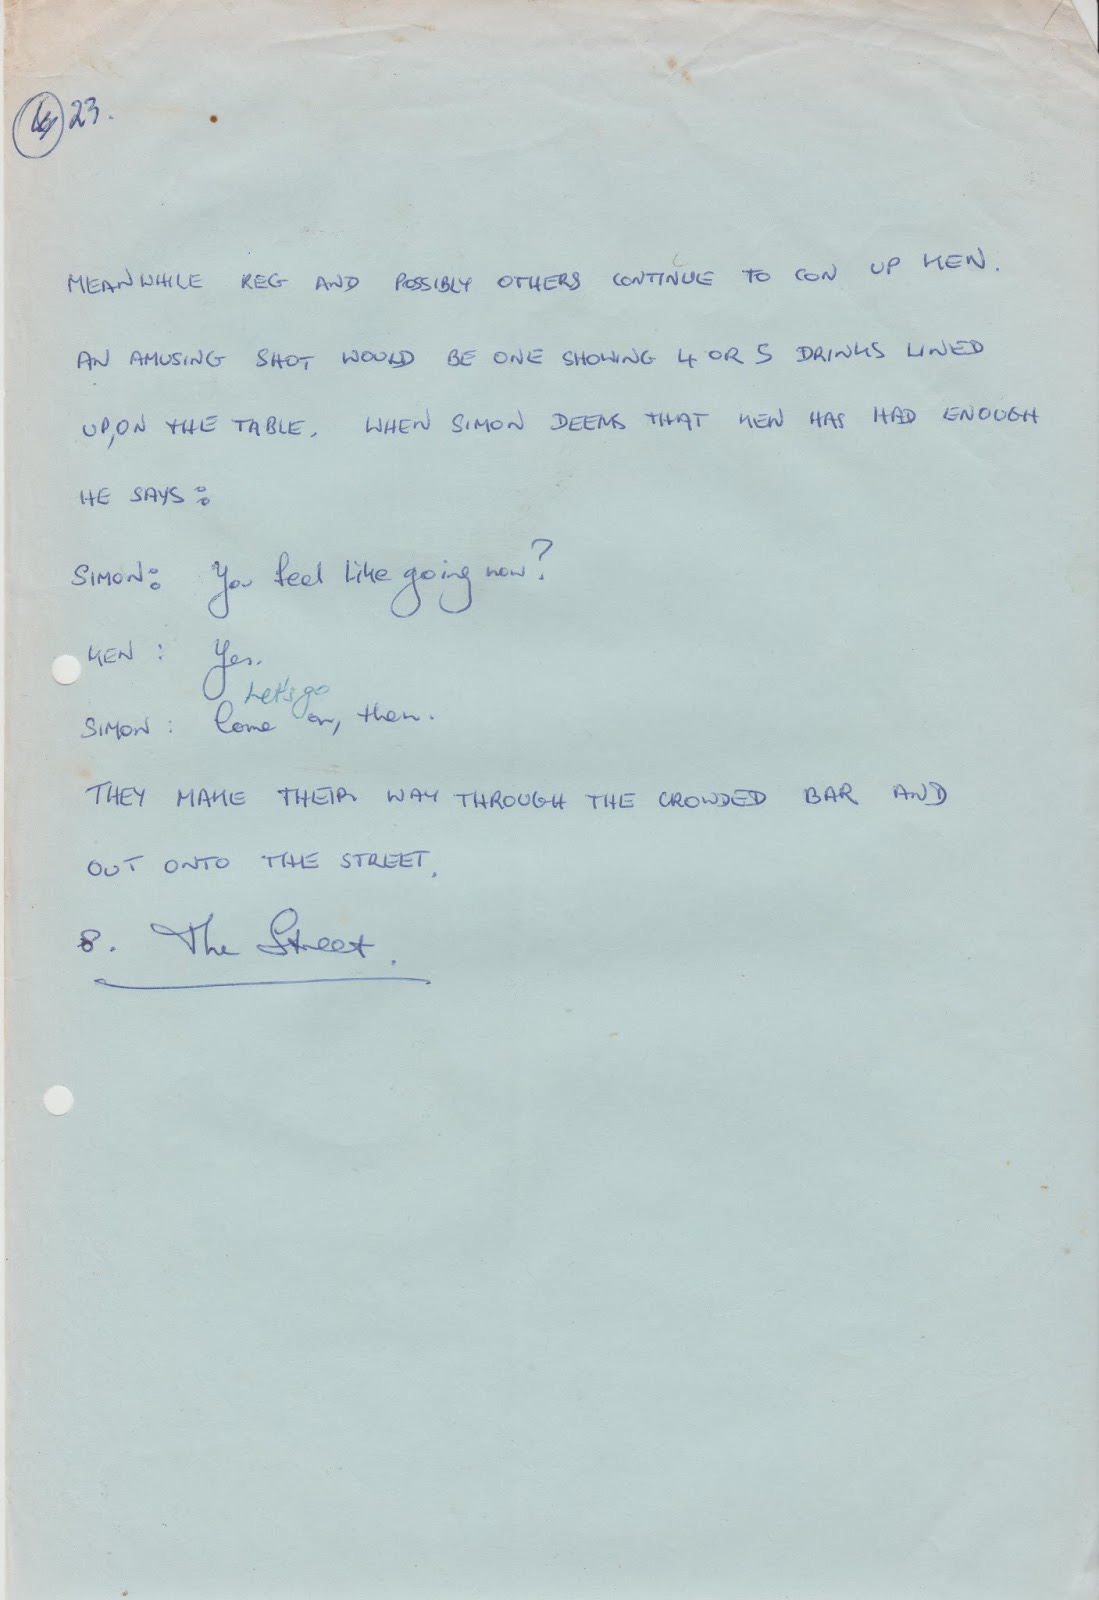 23.
MEANWHILE REG AND POSSIBLY OTHERS CONTINUE TO CON UP KEN.
AN AMUSING SHOT WOULD BE ONE SHOWING 4 OR 5 DRINKS LINED
UP, ON THE TABLE. WHEN SIMON DEEMS THAT KEN HAS HAD ENOUGH
HE SAYS:
SIMON: You feel like going now?
KEN: Yes.
Let's go
SIMON: Come on, then.
THEY MAKE THEIR WAY THROUGH THE CROWDED BAR AND
OUT ONTO THE STREET.
8. The Street.